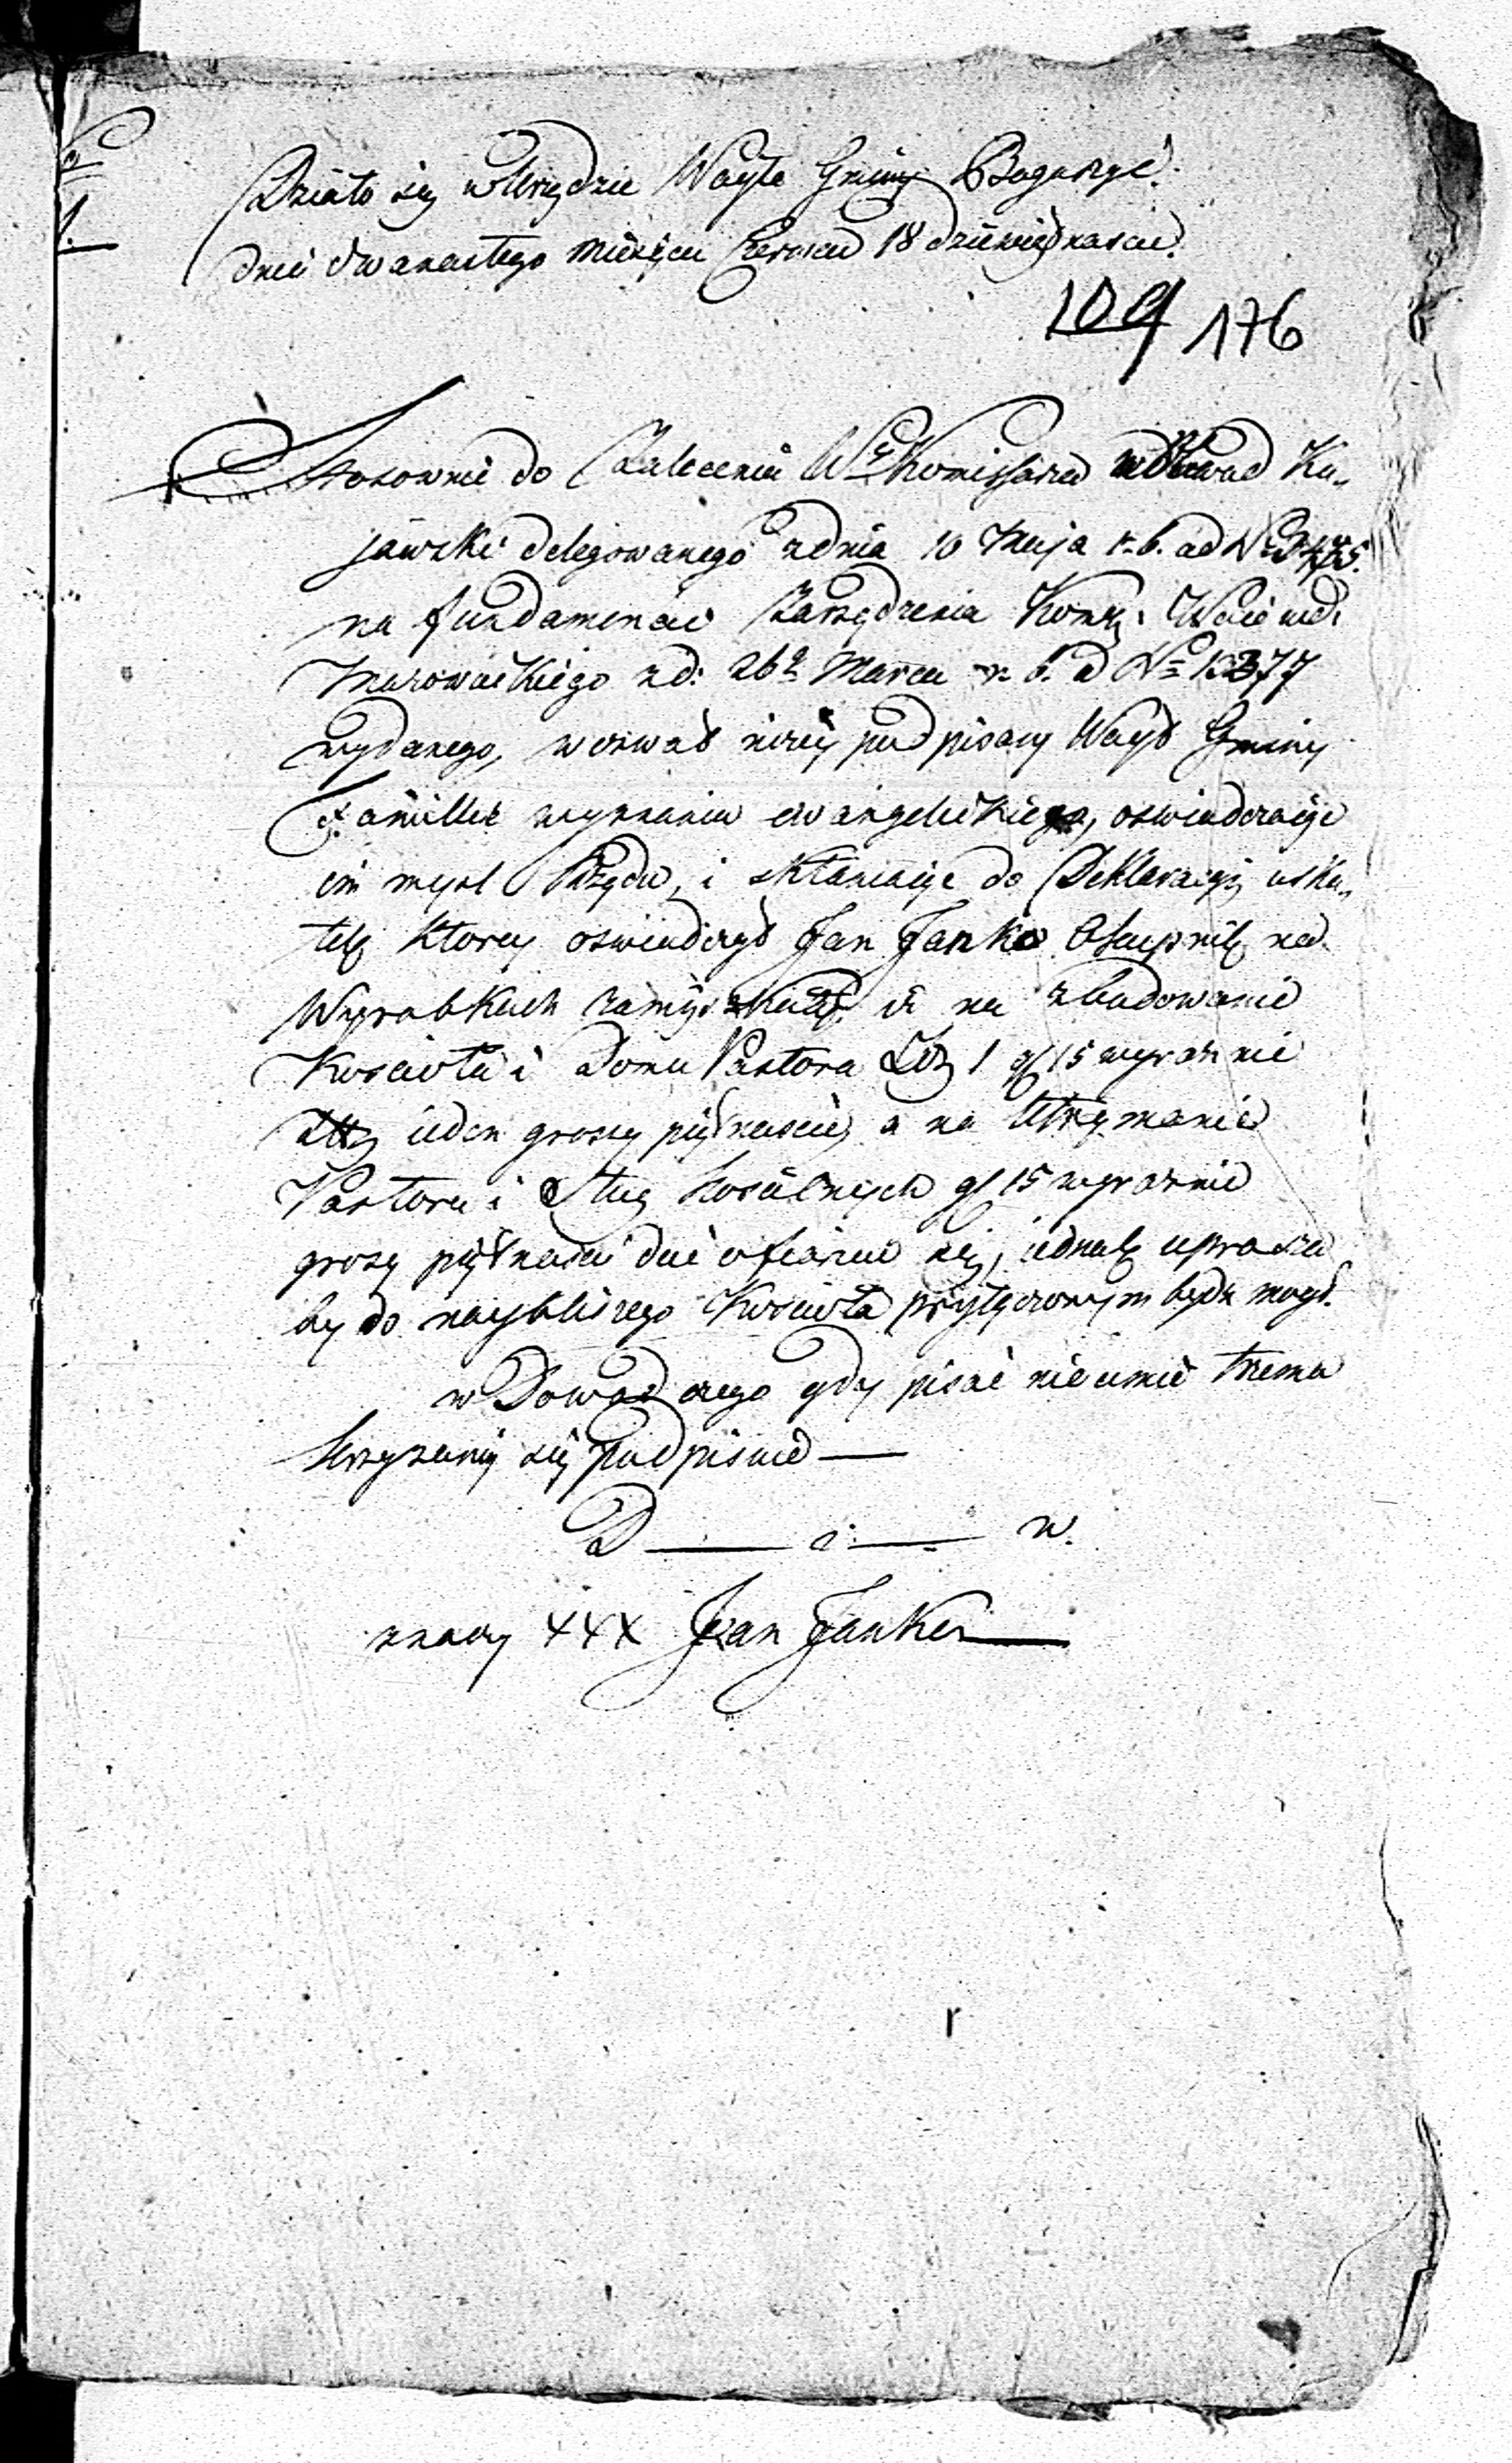 Działo się w Urzędzie Woyta Gminy Boguszyc.
dnia dwanastego Miesiąca Czerwca 18 dziewiętnaście.
109 176
Stosownie do Zalecenia W° Komissarza w Obwod Ku„
jawski delegowanego z dnia 10 Maja r. b. ad N°
na fundamencie Zarządzenia Kom: Woiewd:
Mazowieckiego z d: 26° Marca r. b. ad N° 12377
wydanego, wezwał niżey podpisany Woyt Gminy
Familie wyznania ewangelickiego, oswiadczaiąc
im mysl Rządu, i skłaniaiąc do Deklaracyi, usku„
tek ktorey oswiadczył Jan Janke Okupnik na
Wyrobkach iż na zbudowanie
Koscioła i Domu Pastora Złł 1 gl 15 wyraznie
Złł ieden groszy piętnascie, a na Utrzymanie
Pastora i Sług Koscielnych gl 15 wyraznie
groszy piętnascie dać ofiaruie się, iednak uprasza
by do naybliszego Koscioła przyłączonym bydz mogł.
w Dowod czego gdy pisać nieumie trzema
krzyzami się podpisuie —
D — a — w.
znaki XXX Jan Janke
r